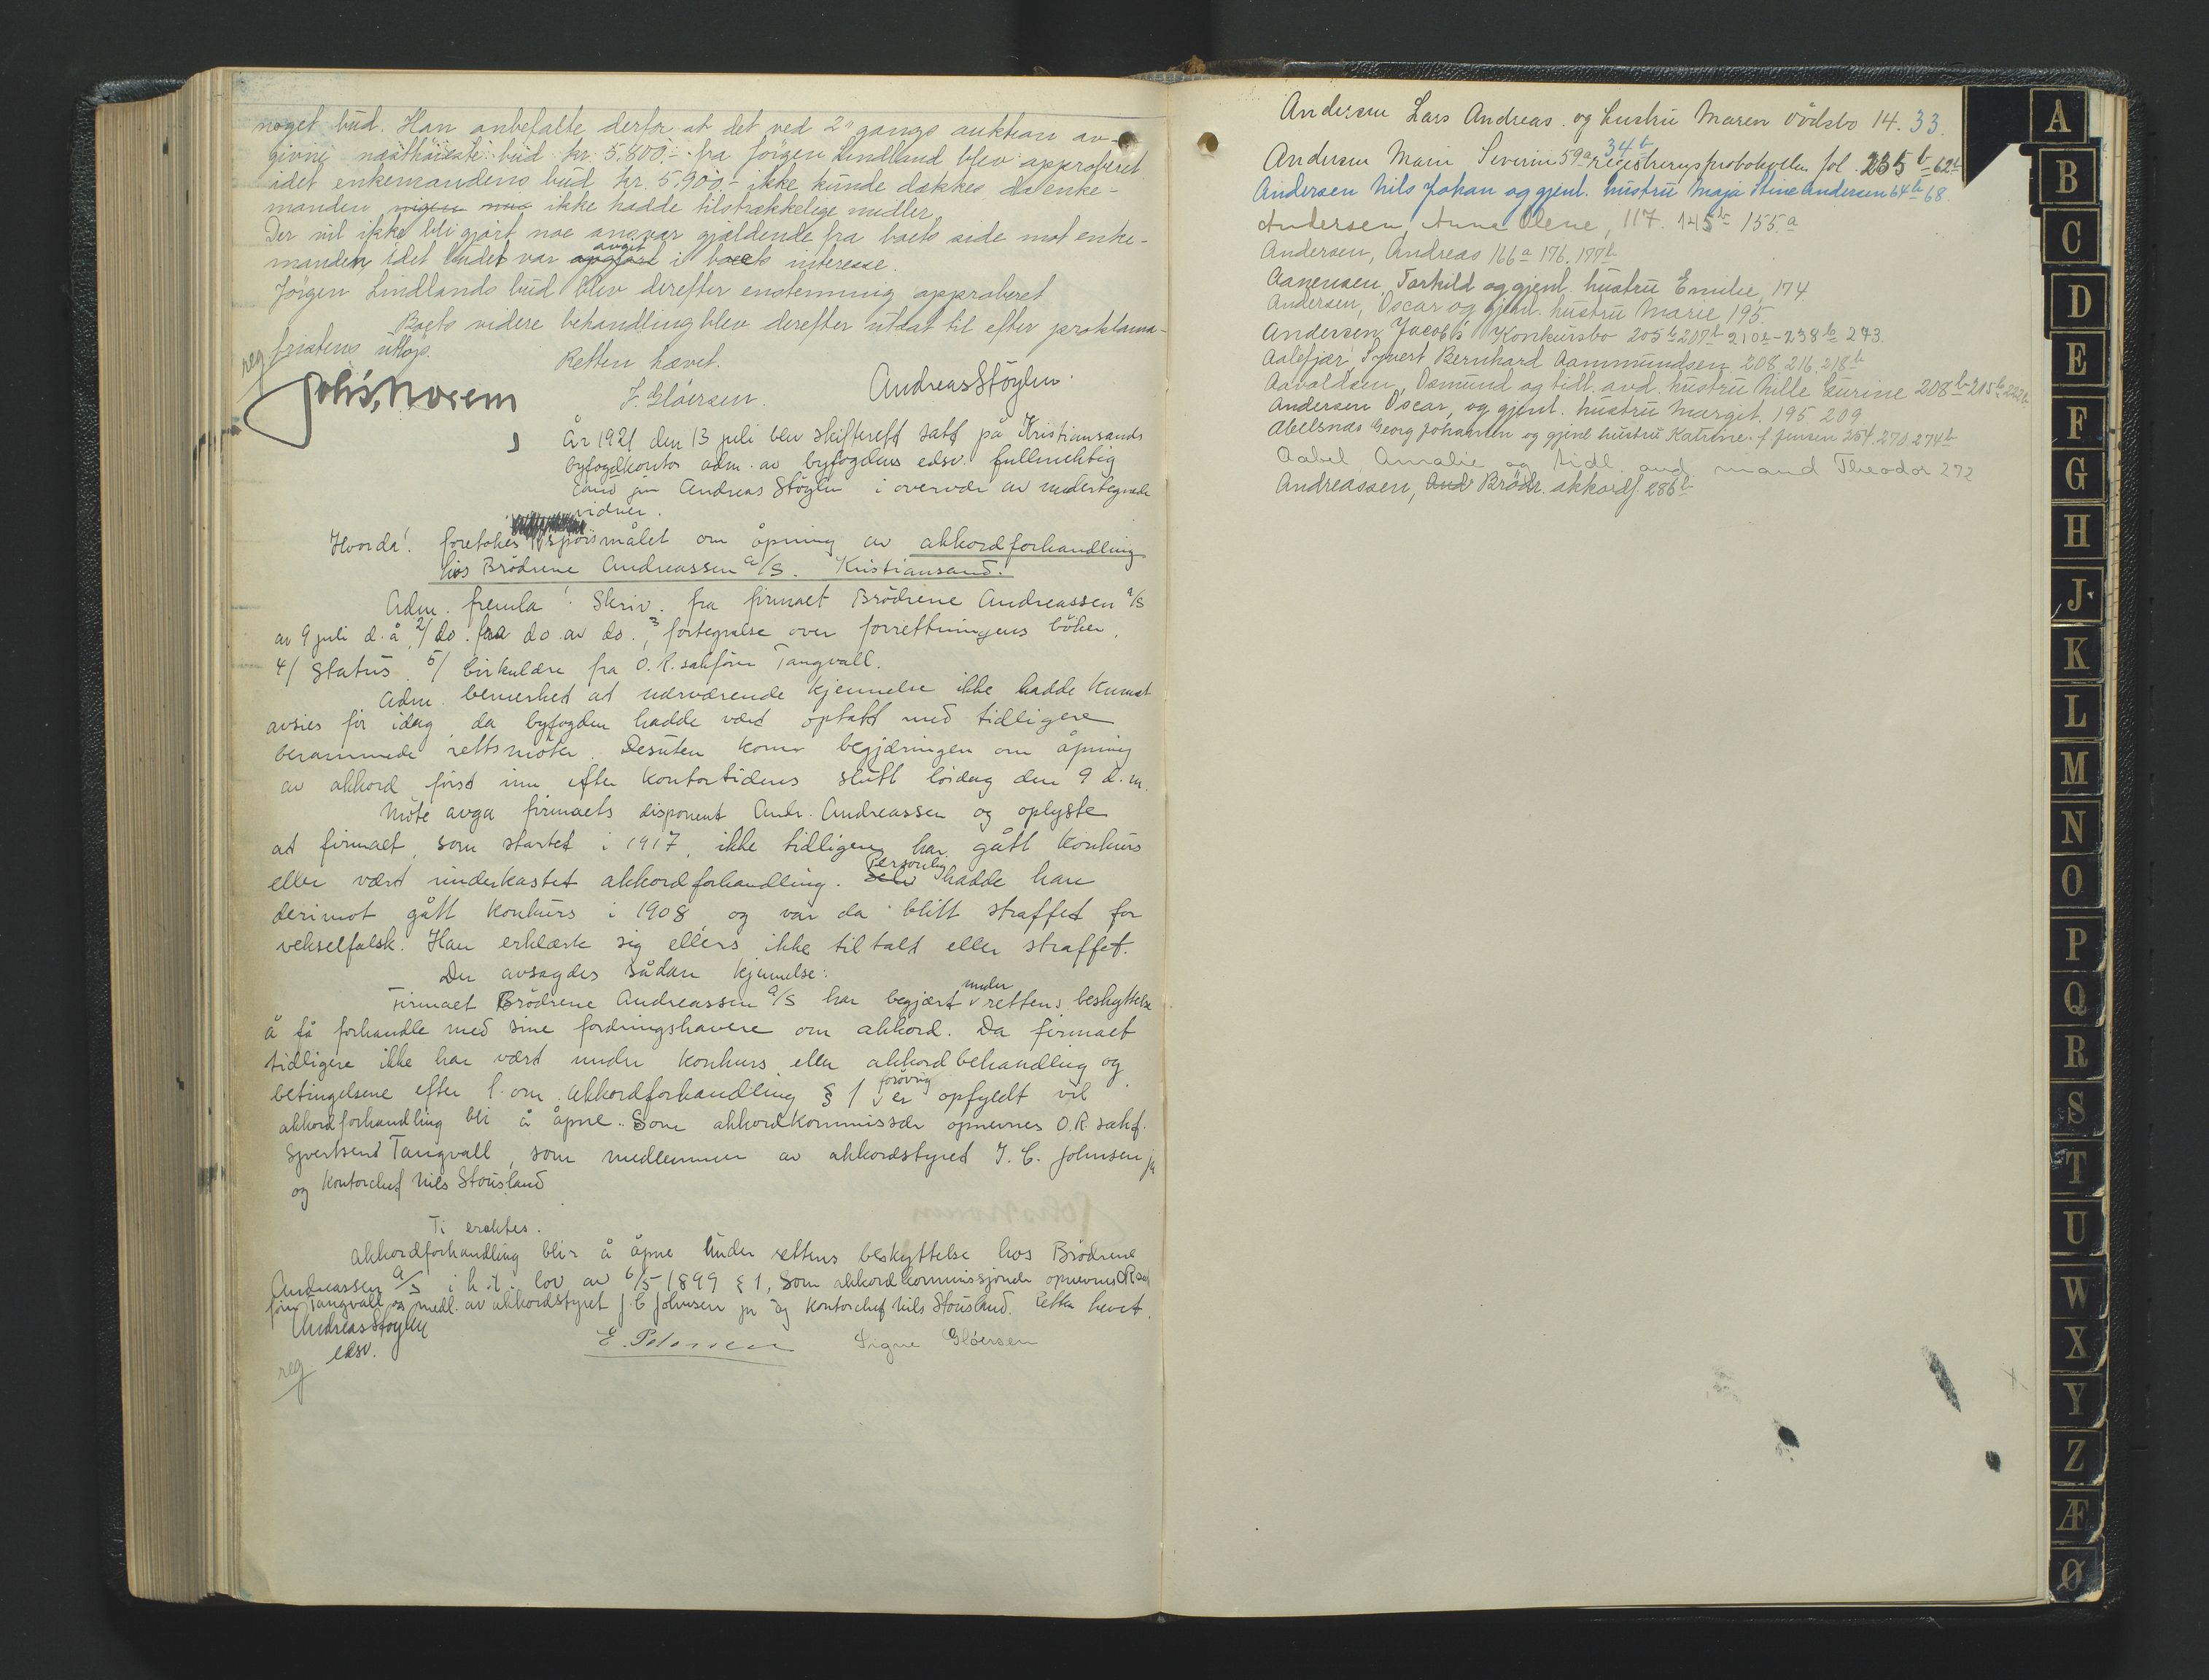 noget bud. Han anbefalte derfor at det ved 2" gangs auktion av-
givne næsthöieste bud kr. 5.800,- fra Jörgen Lindland blev approberet
idet enkemandens bud kr. 5.900.- ikke kunde dækkes da enke-
manden ikke hadde tilstrækkelige midler.
Der vil ikke bli gjort noe ansvar gjældende fra boets side mot enke-
manden idet budet var avgit i boets interesse.
Jörgen Lindlands bud blev derefter enstemmig approberet
Boets videre behandling blev derefter utsat til efter proklama-
fristens utløp.
reg
Retten hævet.
Johs. Norem
J. Glöersen.
Andreas Stöylen.
År 1921 den 13 juli blev skifterett satt på Kristiansands
byfogdkontor adm. av byfogdens edsv. fullmektig
cand jur Andreas Stöylen i overvær av undertegnede
vidner.
Hvorda! foretokes spörsmålet om åpning av akkordforhandling
hos Brödrene Andreassen a/s. Kristiansand.
Adm. fremla 1. Skriv. fra firmaet Brödrene Andreassen a/s
av 9 juli d.å, 2/ do. fra do av do., 3 fortegnelse over forretningens böker,
4/ Status. 5/ Cirkulære fra O.R.sakförer Tangvall.
Adm. bemerket at nærværende kjennelse ikke hadde kunnet
avsies för idag, da byfogden hadde vært optatt med tidligere
berammede rettsmöter. Desuten kom begjæringen om åpning
av akkord först inn efter kontortidens slutt lördag den 9 d.m.
Möte avga firmaets disponent Andr. Andreassen og oplyste
at firmaet, som startet i 1917, ikke tidligere har gått konkurs
eller vært underkastet akkordforhandling. Personlig hadde han
derimot gått konkurs i 1908 og var da blitt straffet for
vekselfalsk. Han erklærte sig ellers ikke tiltalt eller straffet.
Der avsagdes sådan kjennelse:
Firmaet Brödrene Andreassen a/s har begjært under rettens beskyttelse
å få forhandle med sine fordringshavere om akkord. Da firmaet
tidligere ikke har vært under konkurs eller akkordbehandling og
betingelsene efter l. om akkordforhandling § 1 forövrig er opfyldt vil
akkordforhandling bli å åpne. Som akkordkommissær opnevnes O.R.sakf.
Syvertsen Tangvall, som medlemmer av akkordstyret J. C. Johnsen jr
og kontorchef Nils Stousland
Ti eraktes.
Akkordforhandling blir å åpne under rettens beskyttelse hos Brödrene
Andreassen a/s i h.t. lov av 6/5 1899 § 1, Som akkordkommissjonær opnevnes O.R.sak
förer Tangvall og medl. av akkordstyret J. C Johnsen jr og kontorchef Nils Stousland. Retten hevet.
Andreas Stöylen
edsv.
E. Petersen
Signe Glöersen
reg
Andersen Lars Andreas. og hustru Maren Dödsbo 14. 33.
34b
Andersen Marie Severine 59a registreringsprotokollen fol. 235b 62b
Andersen Nils Johan og gjenl. hustru Maja Stine Andersen 64b 68
Andersen, Anna Olene, 117. 145b 155.a
Andersen, Andreas 166a 176. 177b
Aanensen Torkild og gjenl. hustru Emilie, 174
Andersen, Oscar og gjenl. hustru Marie 195.
Andersen, Jacobs Konkursbo 205b 207b 210b - 238b 273.
Aalefjær Syvert Bernhard Aanmundsen 208, 216. 218b
Aavoldsen, Osmund og tidl. avd. hustru Nille Gurine 208b 215b 222b
Andersen Oscar, og gjenl. hustru Margit. 195 209
Abelsnæs Georg Johannen og gjenl hustru Katrine f Jensen 254. 270 274b
Aabel, Amalie og tidl. avd mand Theodor 272
Andreassen, Brödr. akkordf. 286b
A
B
C
D
E
F
G
H
J
K
L
M
N
O
P
Q
R
S
T
U
W
X
Y
Z
Æ
Ø